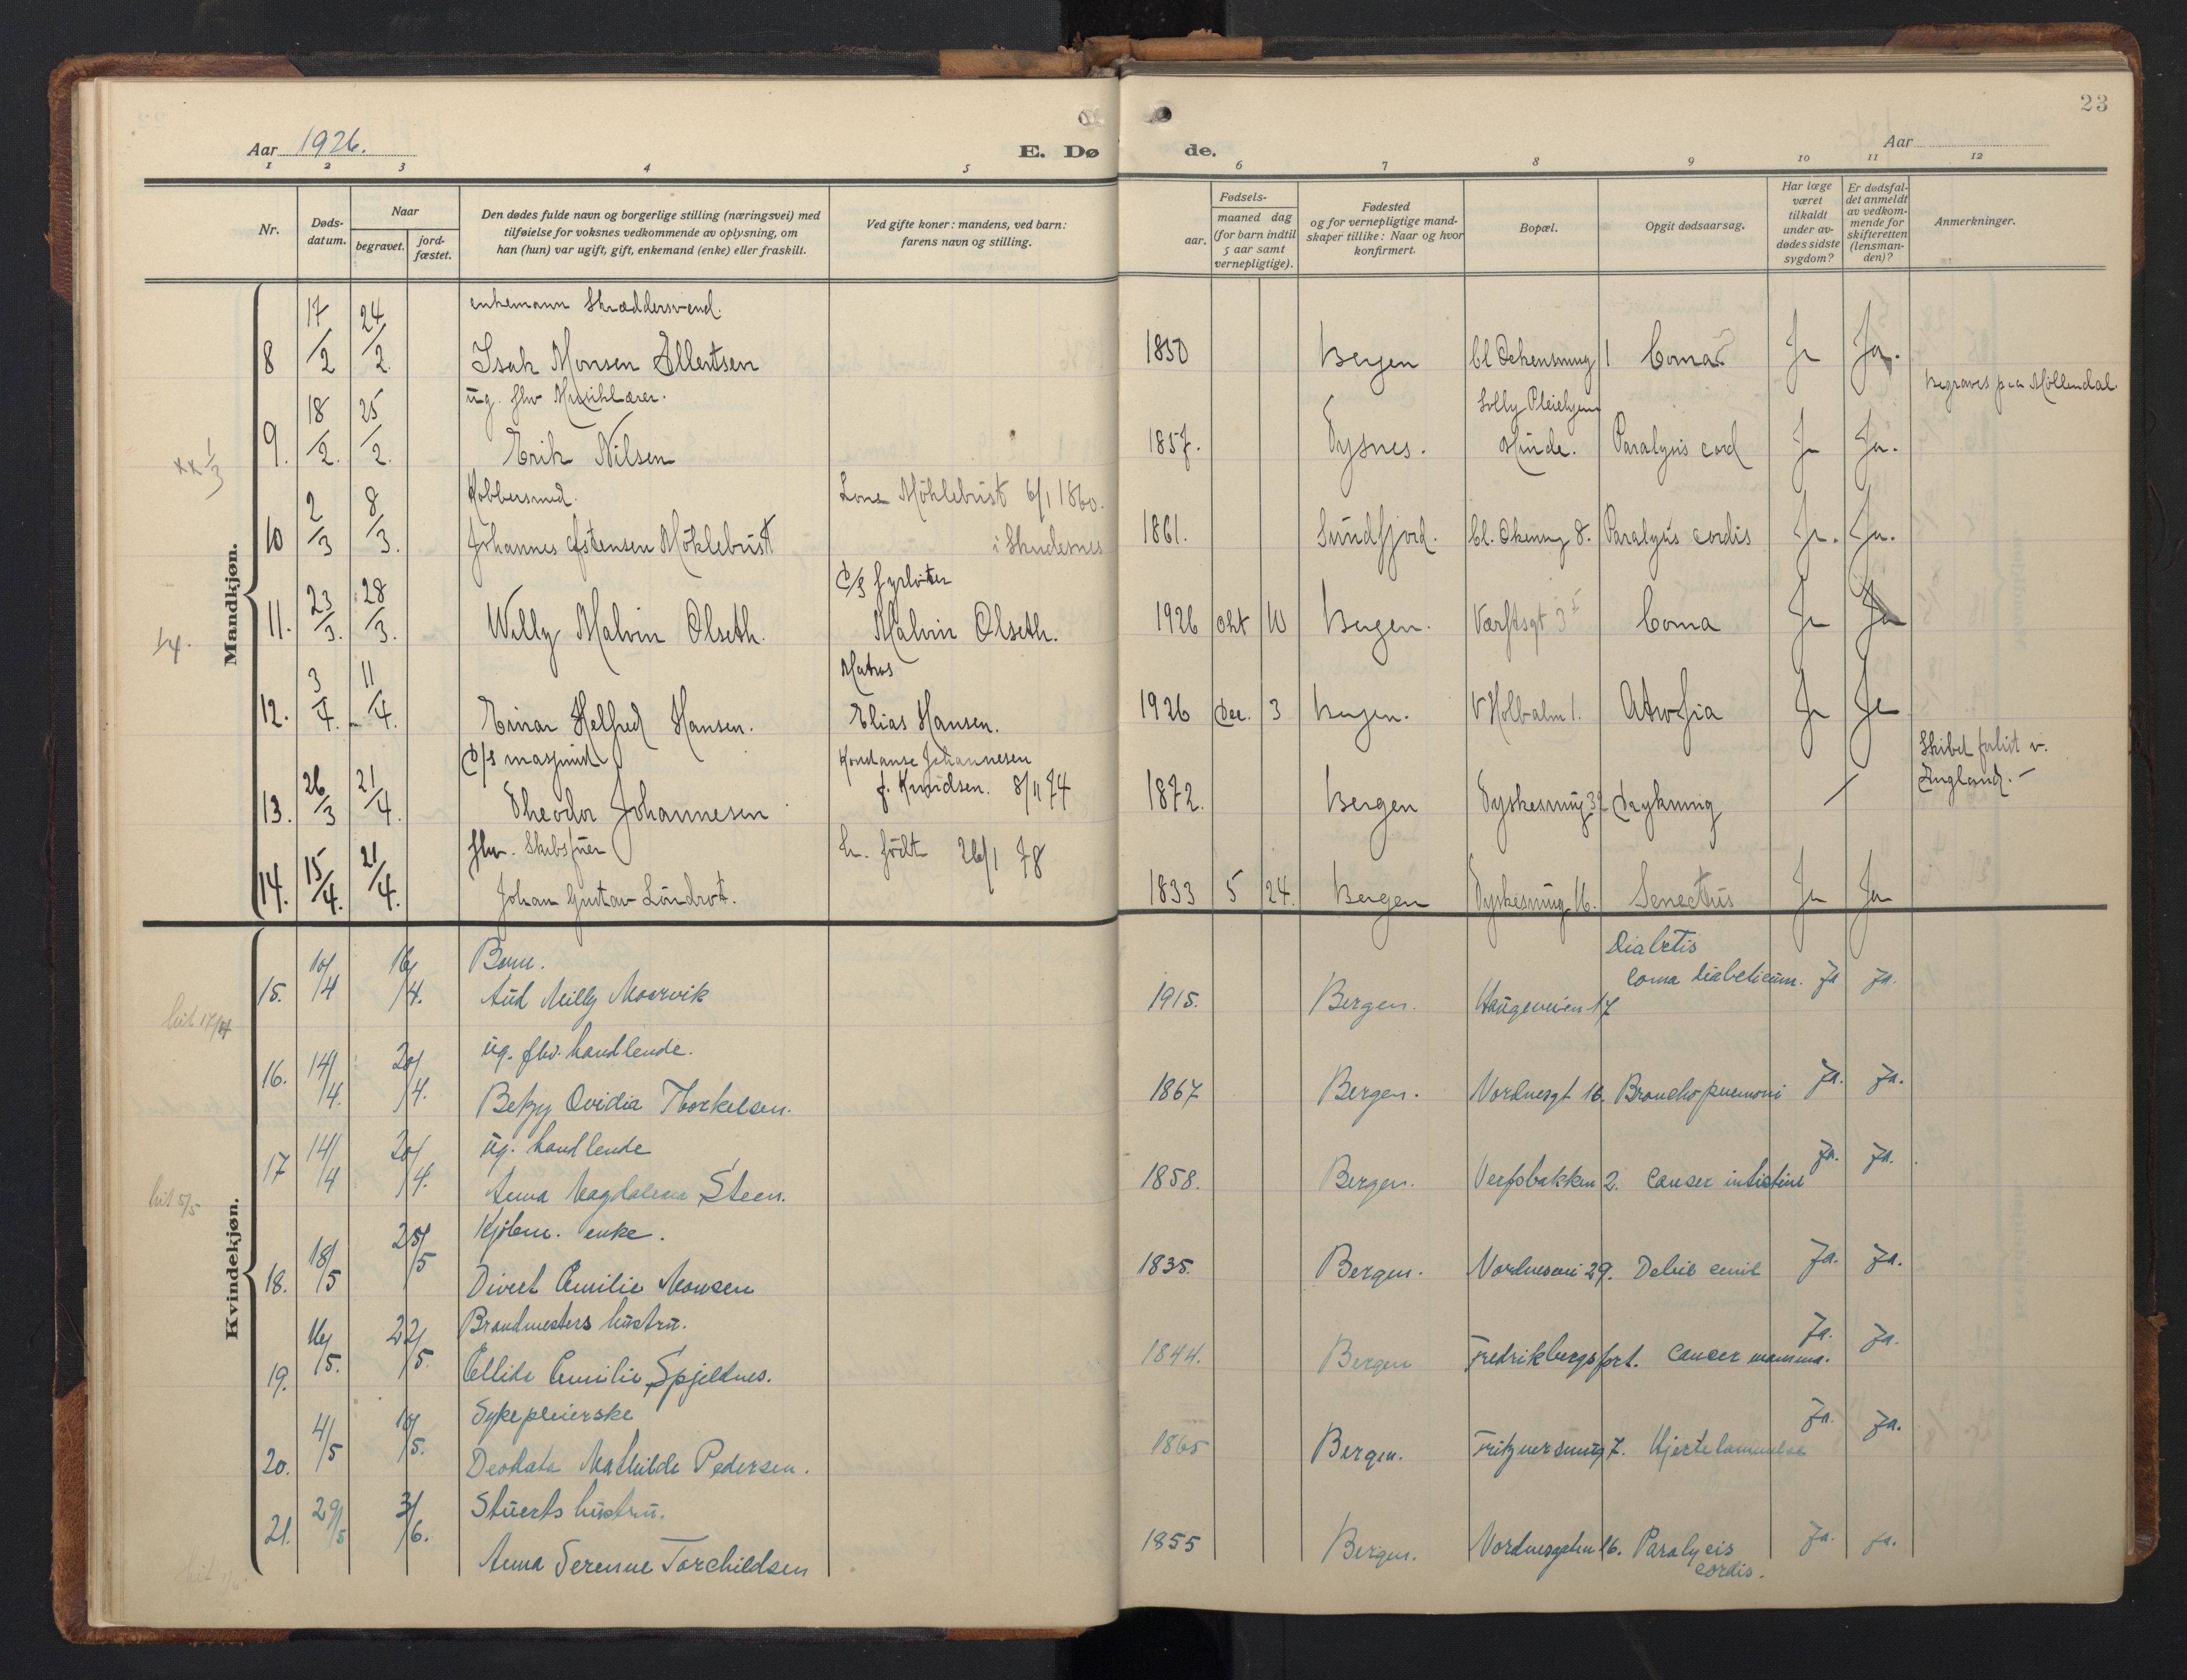 23
Aar 1926.
E. Dø
de.
Aar
1 2 3 4 5 6 7 8 9 10 11 12
Nr.
Døds-
datum.
Naar
begravet.
jord-
fæstet.
Den dødes fulde navn og borgerlige stilling (næringsvei) med
tilføielse for voksnes vedkommende av oplysning, om
han (hun) var ugift, gift, enkemand (enke) eller fraskilt.
Ved gifte koner: mandens, ved barn:
farens navn og stilling.
aar.
Fødsels-
maaned dag
(for barn indtil
5 aar samt
vernepligtige).
Fødested
og for vernepligtige mand-
skaper tillike: Naar og hvor
konfirmert.
Bopæl.
Opgit dødsaarsag.
Har læge
været
tilkaldt
under av-
dødes sidste
sygdom?
Er dødsfal-
det anmeldt
av vedkom-
mende for
skifteretten
(lensman-
den)?
Anmerkninger.
Mandkjøn.
enkemann Skræddersvend.
8 17/2 24/2 Isak Monsen Ellertsen 1850 Bergen 1 Coma Ja Ja.
Begraves paa Møllendal.
ug. fhv Musiklærer.
Solly Pleiehjem
9. 18/2. 25/2. Erik Nilsen 1857. Tysnes. Minde. Paralysis cord Ja Ja.
xx 1/3
Kobbersmed. Lone Møklebust 6/1 1860.
10 2/3 8/3. Johannes Møklebust i Skudesnes 1861. Sundfjord. 8. Paralysis cordis Ja. Ja.
d/s fyrbøter
11. 23/3. 28/3. Willy Malvin Olseth. Malvin Olseth. 1926 okt 10 Bergen. Værftsgt 3 Coma Ja Ja
14.
Matros
12. 3/4. 11/4. Einar Helfred Hansen. Elias Hansen. 1926 dec. 3 Bergen. 1. Atrofia Ja Ja
d/s maskinist Konstanse Johannesen
f. Knudsen. 8/11 74
Skibet forlist v.
England. –
13. 26/3 21/4. Theodor Johannesen 1872. Bergen
fhv. Skibsfører h. født 26/1 78
14. 15/4. 21/4. Johan Gustav Lündrot. 1833 5 24. Bergen 16. Senectus Ja Ja
Kvindekjøn.
Barn. Diabetis
15. 10/4 16/4. Aud Milly Moervik 1915. Bergen. Haugeveien 17 Coma diabeticum. Ja Ja.
hit 17/4
ug. fhv. handlende.
16. 14/4. 20/4. Betzy Ovidia Thorkelsen. 1867 Bergen. Nordnesgt 16. Bronchopnemoni Ja. Ja.
ug. handlende
17 14/4 20/4. Anna Magdalena Steen. 1858. Bergen. Verfsbakken 2. Cancer intistini Ja. Ja.
hit 5/5
Kjøbm. enke.
18. 18/5 25/5 Divert Emilie Monsen 1835. Bergen. Nordnesvei 29. Debil senil Ja. Ja.
Brandmesters hustru.
19. 16/5. 22/5. Ellida Emilie Spjeldnes. 1844. Bergen Fredrikbergsfort. Cancer mamma. Ja. Ja.
Sykepleierske
20. 4/5 10/5. Deodata Mathilde Pedersen. 1865 Bergen. Fritznersmug 7. Hjertelammelse Ja. Ja.
Stuerts hustru.
21. 29/5 3/6. Anna Serenne Torchildsen 1855 Bergen. Nordnesgaten 16. Paralysis Ja. Ja.
cordis.